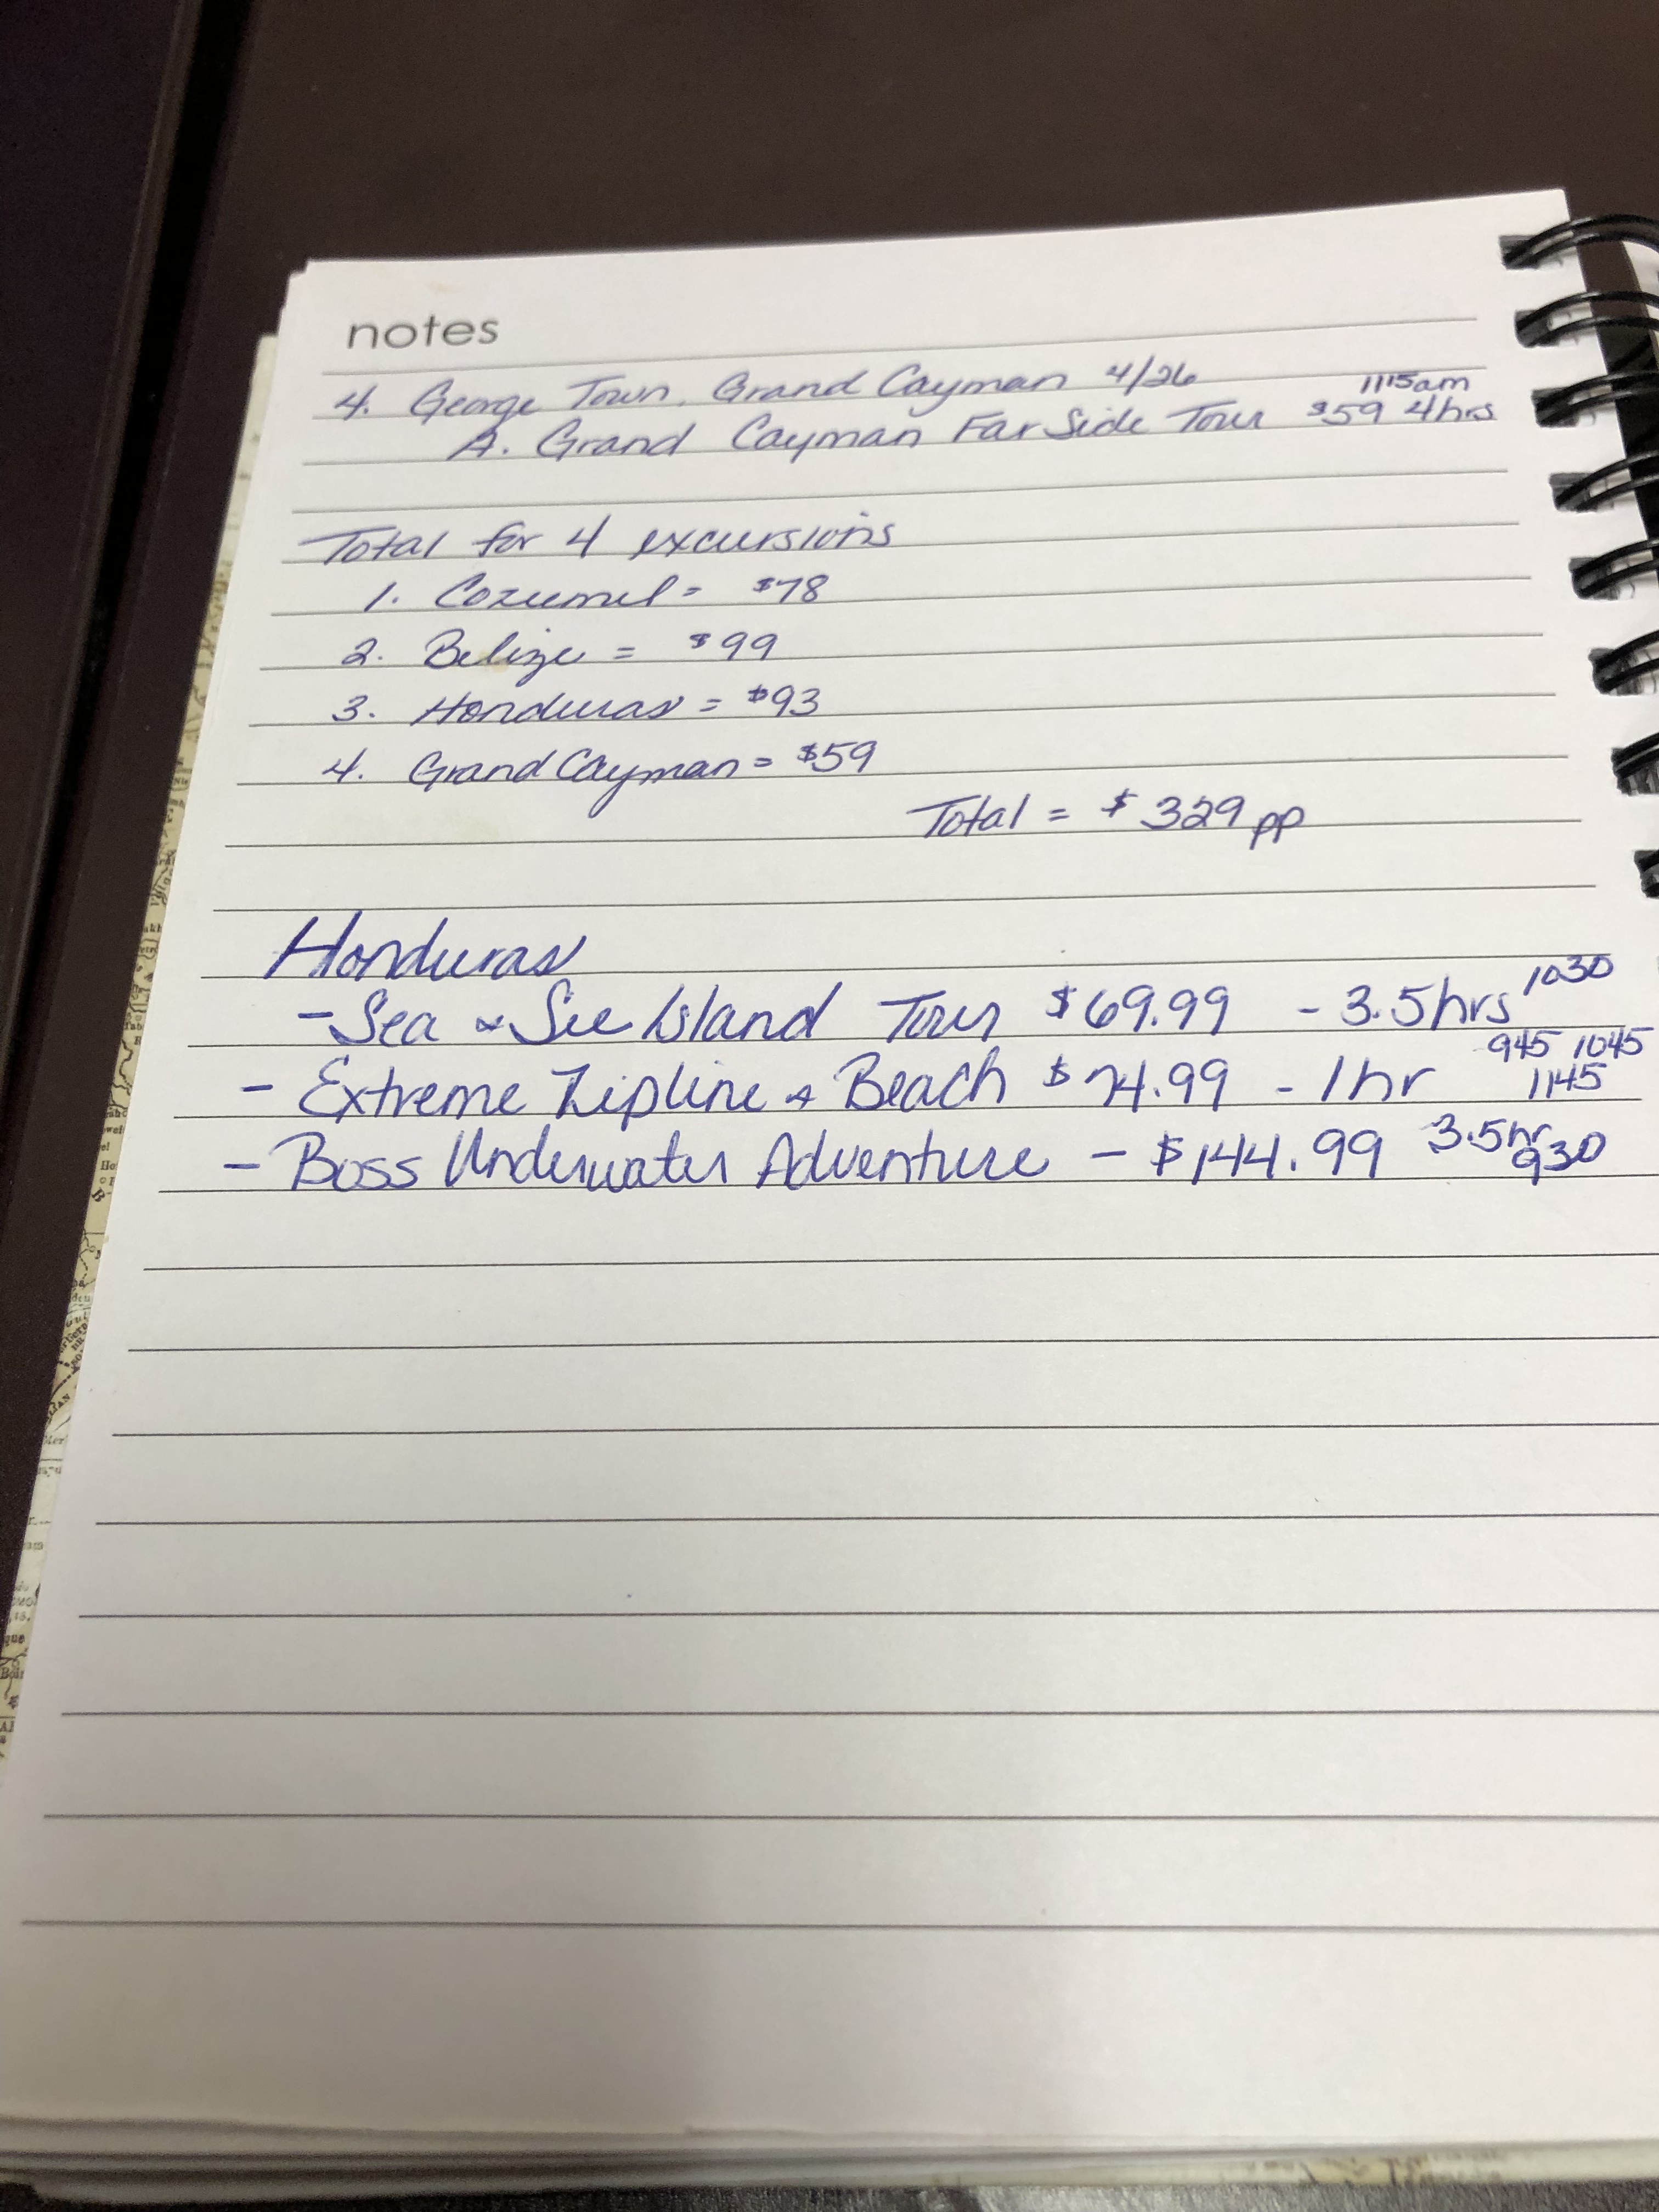 notes
4. George Town, Grand Cayman 4/26
1115am
A. Grand Cayman Far Side Tour $59 4hrs
Total for 4 excursions
1. Cozumel = $78
2. Belize = $99
3. Honduras = $93
4. Grand Cayman = $59
Total = $329 pp
Honduras
- Sea & See Island Tour $69.99 - 3.5hrs 1030
945 1045
- Extreme Zipline & Beach $74.99 - 1hr 1145
- Boss Underwater Adventure - $144.99 3.5hr
930